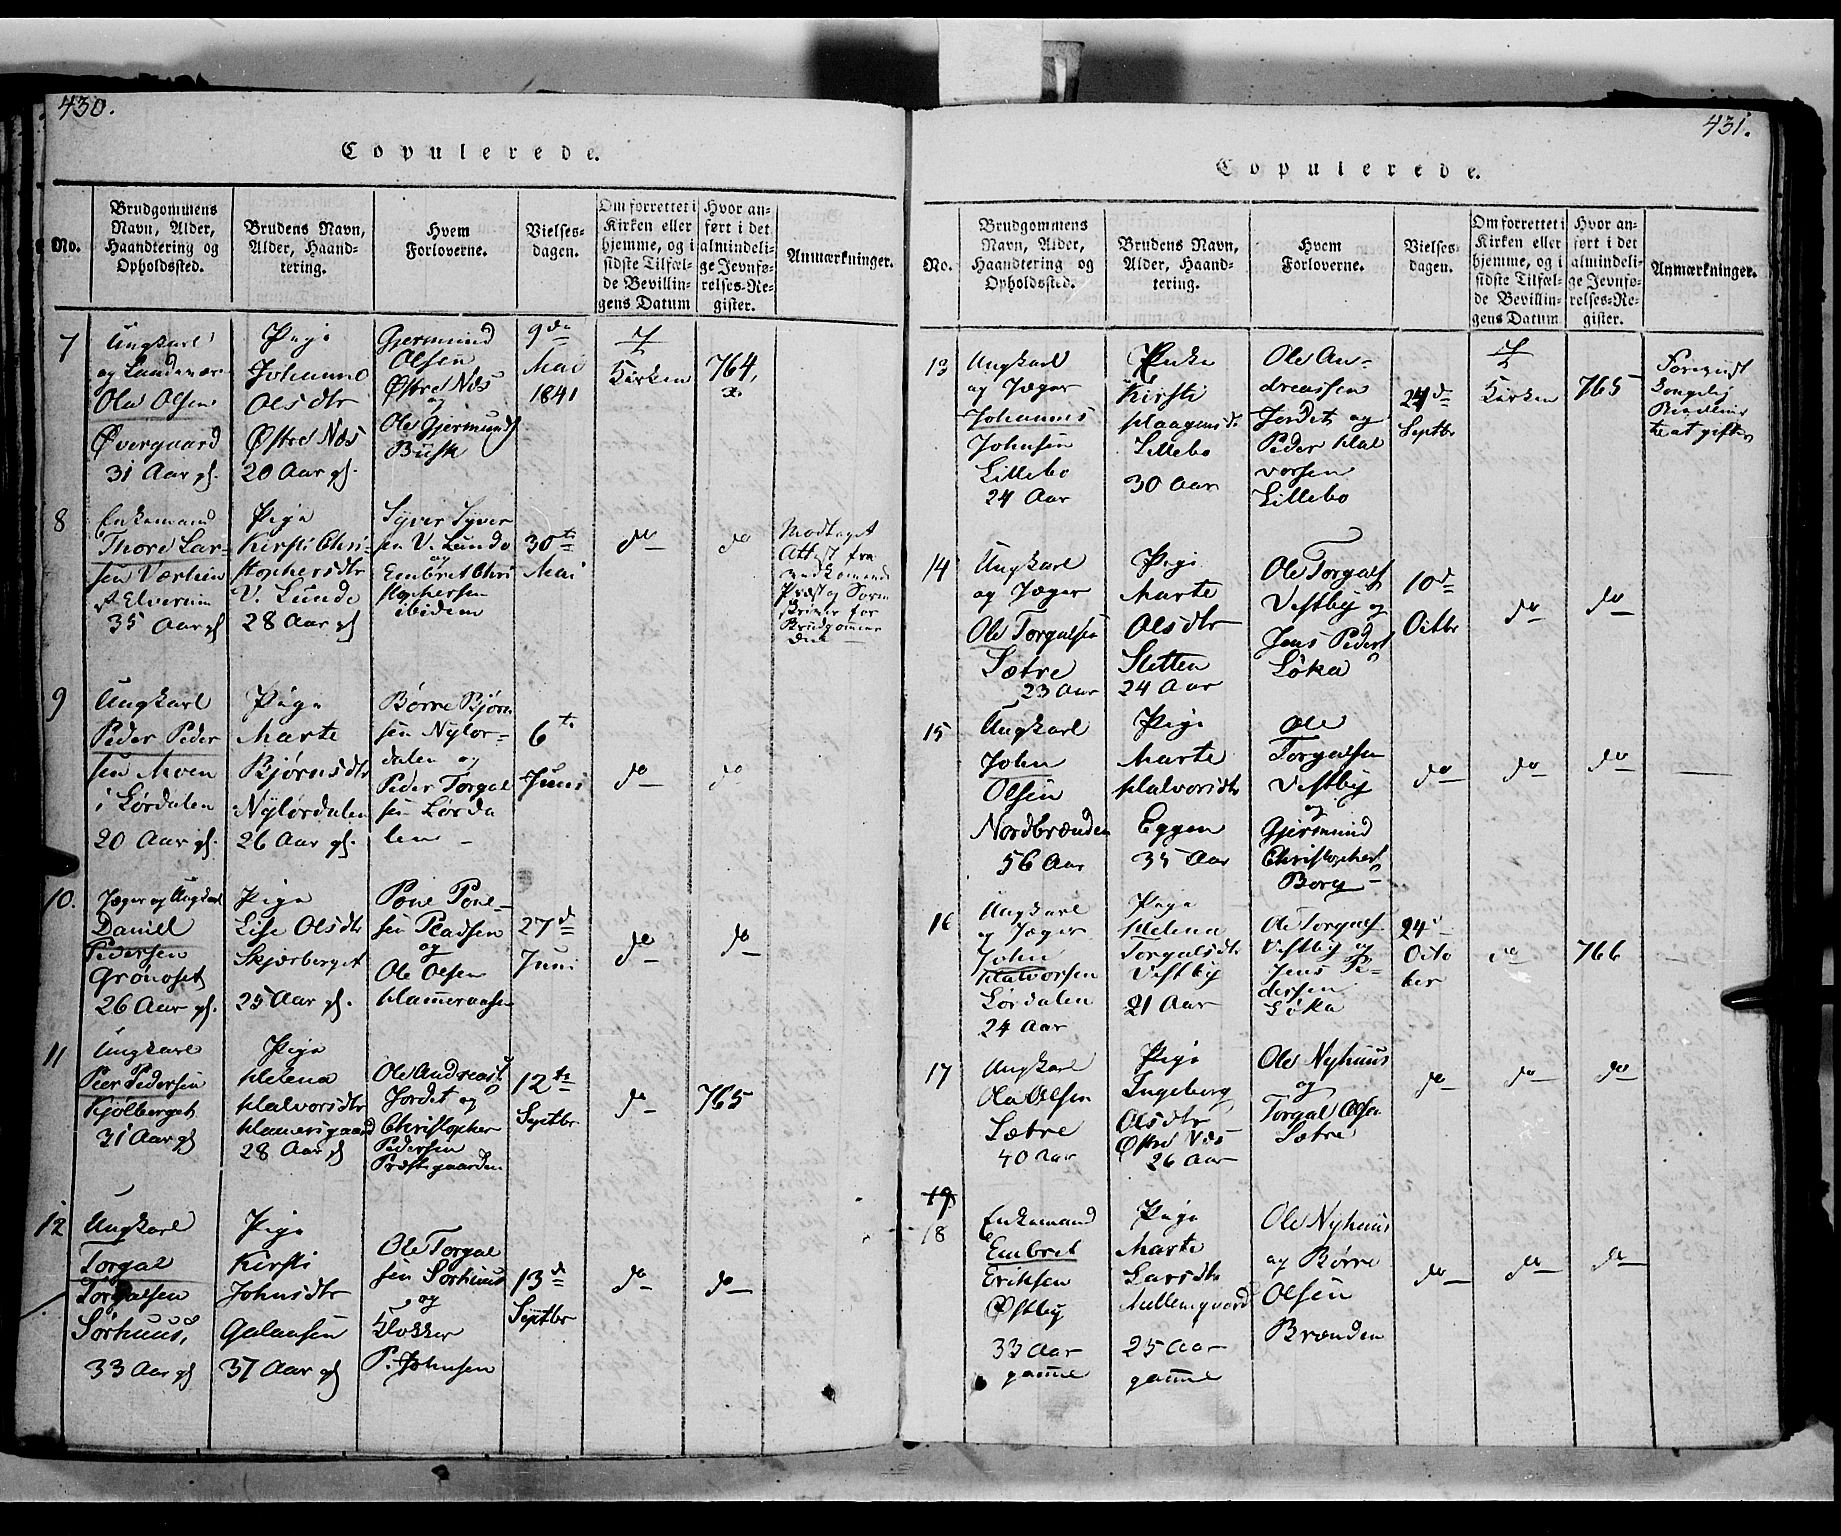 430.
Copulerede.
No.
Brudgommens
Navn, Alder,
Haandtering og
Opholdssted.
Brudens Navn,
Alder, Haand-
tering.
Hvem
Forloverne.
Vielses-
dagen.
Om forrettet i
Kirken eller
hjemme, og i
sidste Tilfæl-
de Bevillin-
gens Datum
Hvor an-
ført i det
almindeli-
ge Jevnfø-
relses-Re-
gister.
Anmærkninger.
7
Ungkarl
og
Ole Olsen
Øvergaard
31 Aar gl.
Pige
Johanne
Olsdtr
Østre Næs
20 Aar gl.
Gjermund
Olsen
Østre Næs
og
Ole Gjermunds
Busk
9de
Mai
1841
I
Kirken
764,
8
Enkemand
Thore Lar-
sen Værhien
Elverum
35 Aar gl
Pige
Kirsti Chri-
stophersdtr
V. Lunde
28 Aar gl
Syver Syver
sen V. Lunde
og
Embret Chri
stophersen
ibidem
30te
Mai
do
do
Modtaget
Attest fra
vedkommend
Præst og Soren
skriver for
Brudgommen
9
Ungkarl
Peder Peder
sen Moen
i Lørdalen
20 Aar gl.
Pige
Marte
Bjørnsdtr
Nylørdalen
26 Aar gl.
Børre Bjørn
sen Nylør-
dalen og
Peder Torgal
sen Lørda
len
6te
Juni
do
do
10.
Jæger og Ungkarl
Daniel
Pedersen
Grønoset
26 Aar gl.
Pige
Lise Olsdtr
Skjærberget
25 Aar gl.
Poul Poul-
sen Pladsen
og
Ole Olsen
Hammeraasen
27de
Juni
do
do
11
Ungkarl
Peer Pedersen
Kjølberget
31 Aar gl
Pige
Helena
Halvorsdtr
Hamersgaard
28 Aar gl
Ole Andreas
Jordet og
Christopher
Pedersen
Præstegaarden
12te
Septbr
do
765
12
Ungkarl
Torgal
Torgalsen
Sørhuus,
33 Aar gl
Pige
Kirsti
Johnsdtr
Galaasen
37 Aar gl
Ole Torgal
sen Sørhuus
og
Klokker
P. Johnsen
13de
Septbr
do
do
431.
Copulerede.
No.
Brudgommens
Navn, Alder,
Haandtering og
Opholdssted.
Brudens Navn,
Alder, Haand-
tering.
Hvem
Forloverne.
Vielses-
dagen.
Om forrettet i
Kirken eller
hjemme, og i
sidste Tilfæl-
de Bevillin-
gens Datum
Hvor an-
ført i det
almindeli-
ge Jevnfø-
relses-Re-
gister.
Anmærkninger.
13
Ungkarl
og Jæger
Johannes
Johnsen
Lillebo
24 Aar
Kirsti
Haagensdr
Lillebo
30 Aar
Ole An-
dreassen
Jordet og
Peder Hal
vorsen
Lillebo
Septbr
I
Kirken
765
14
Ungkarl
og Jæger
Ole Torgalsen
Sætre
23 Aar
Pige
Marte
Olsdtr
Sletten
24 Aar
Ole Torgals
Vestby og
Jens Peders
Løka
10de
Octbr
do
do
15
Ungkarl
John
Olsen
Nordbrænden
56 Aar
Pige
Marte
Halvorsdtr
Eggen
35 Aar
Ole
Torgalsen
Vestby
og
Gjermund
Christophers
Borg
do
do
do
16
Ungkarl
og Jæger
John
Halvorsen
Lørdalen
24 Aar
Pige
Helena
Torgalsdtr
Vestby
21 Aar
Ole Torgals
Vestby og
Jens Pe-
dersen
Løka
24de
Octo
ber
do
766
17
Ungkarl
Ola Olsen
Sætre
40 Aar
Pige
Ingeborg
Olsdtr
Østre Næs
26 Aar
Ole Nyhuus
og
Torgal Olsen
Sætre
do
do
do
18
Enkemand
Embret
Eriksen
Østby
33 Aar
gamme
Pige
Marte
Larsdtr
Mellemgaard
25 Aar
gamme
Ole Nyhuus
og Børre
Olsen
Brænden
do
do
do